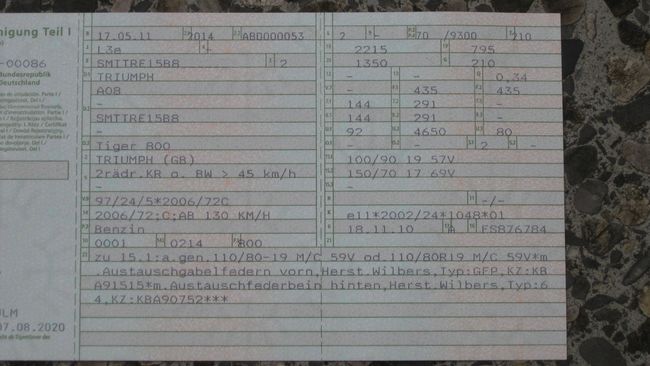 nigung Teil I
-00086
Bundesrepublik
Deutschland
ULM
07.08.2020
17.05.11 2014 ABD000053
L3e -
SMITRE15B8 2
TRIUMPH
A08
-
SMITRE15B8
-
Tiger 800
TRIUMPH (GB)
2rädr.KR o. BW > 45 km/h
97/24/5*2006/72C
2006/72;C;AB 130 KM/H
Benzin
0001 0214 800
2 - 70 /9300 210
2215 795
1350 210
- - 0,34
- 435 435
144 291 -
144 291 -
92 4650 80
- - 2 -
100/90 19 57V
150/70 17 69V
-
-/-
e11*2002/24*1048*01
18.11.10 A FS876784
zu 15.1:a.gen.110/80-19 M/C 59V od.110/80R19 M/C 59V*m
.Austauschgabelfedern vorn,Herst.Wilbers,Typ:GFP,KZ:KB
A91515*m.Austauschfederbein hinten,Herst.Wilbers,Typ:6
4,KZ:KBA90752***